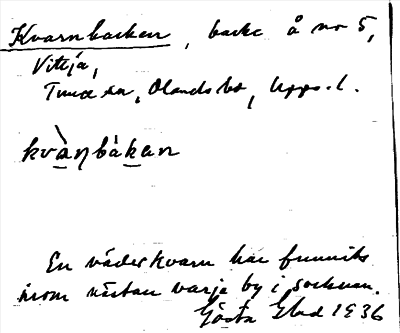 Kvarnbacken, backe å no 5,
Vittja,
Tuna sn, Olands hd, Upps. l.
kvà̱ŋbàḵan
En väderkvarn har funnits
inom nästan varje by i socknen.
Gösta Elad 1936